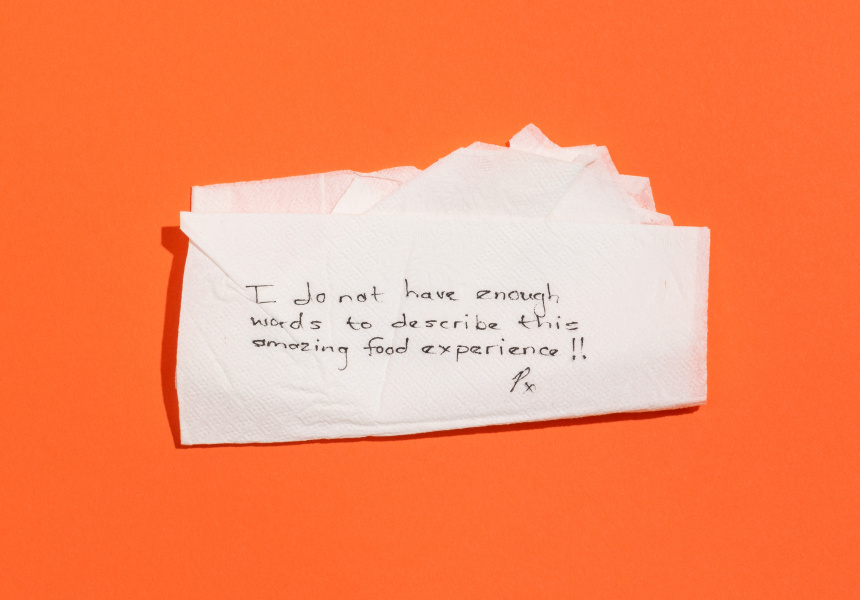 I do not have enough
words to describe this
amazing food experience !!
Px